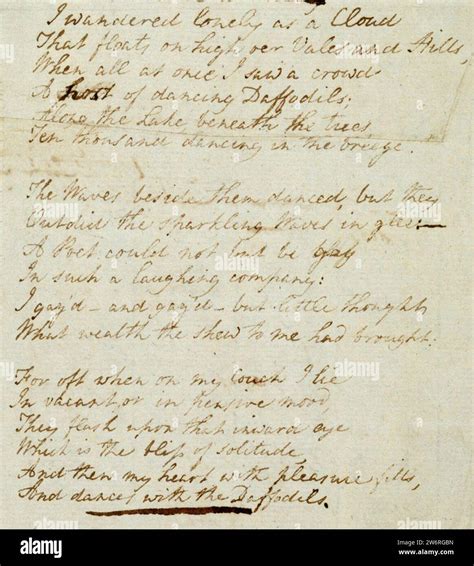 I wandered lonely as a Cloud
That floats on high oer Vales and Hills,
When all at once I saw a crowd
A host of dancing Daffodils;
Along the Lake, beneath the trees,
Ten thousand dancing in the breeze.
The Waves beside them danced, but they
Outdid the sparkling Waves in glee:—
A Poet could not but be gay
In such a laughing company:
I gaz'd—and gaz'd—but little thought
What wealth the shew to me had brought:
For oft when on my Couch I lie
In vacant or in pensive mood,
They flash upon that inward eye
Which is the bliss of solitude,
And then my heart with pleasure fills,
And dances with the Daffodils.
alamy
Image ID: 2W6RGBN
www.alamy.com